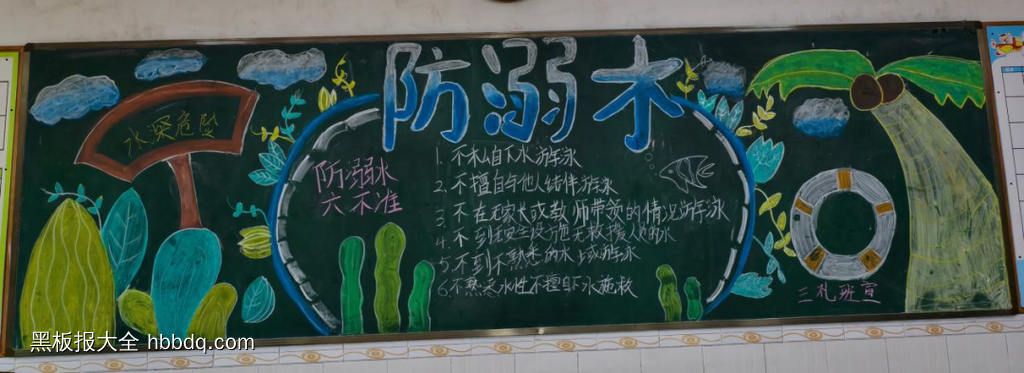 防溺水
水深危险
防溺水
六不准
1. 不私自下水游泳
2. 不擅自与他人结伴游泳
3. 不在无家长或教师带领的情况游泳
4. 不到无安全设施无救援人的水
5. 不到不熟悉的水域游泳
6. 不熟悉水性不擅自下水施救
三礼班宣
黑板报大全 hbbdq.com